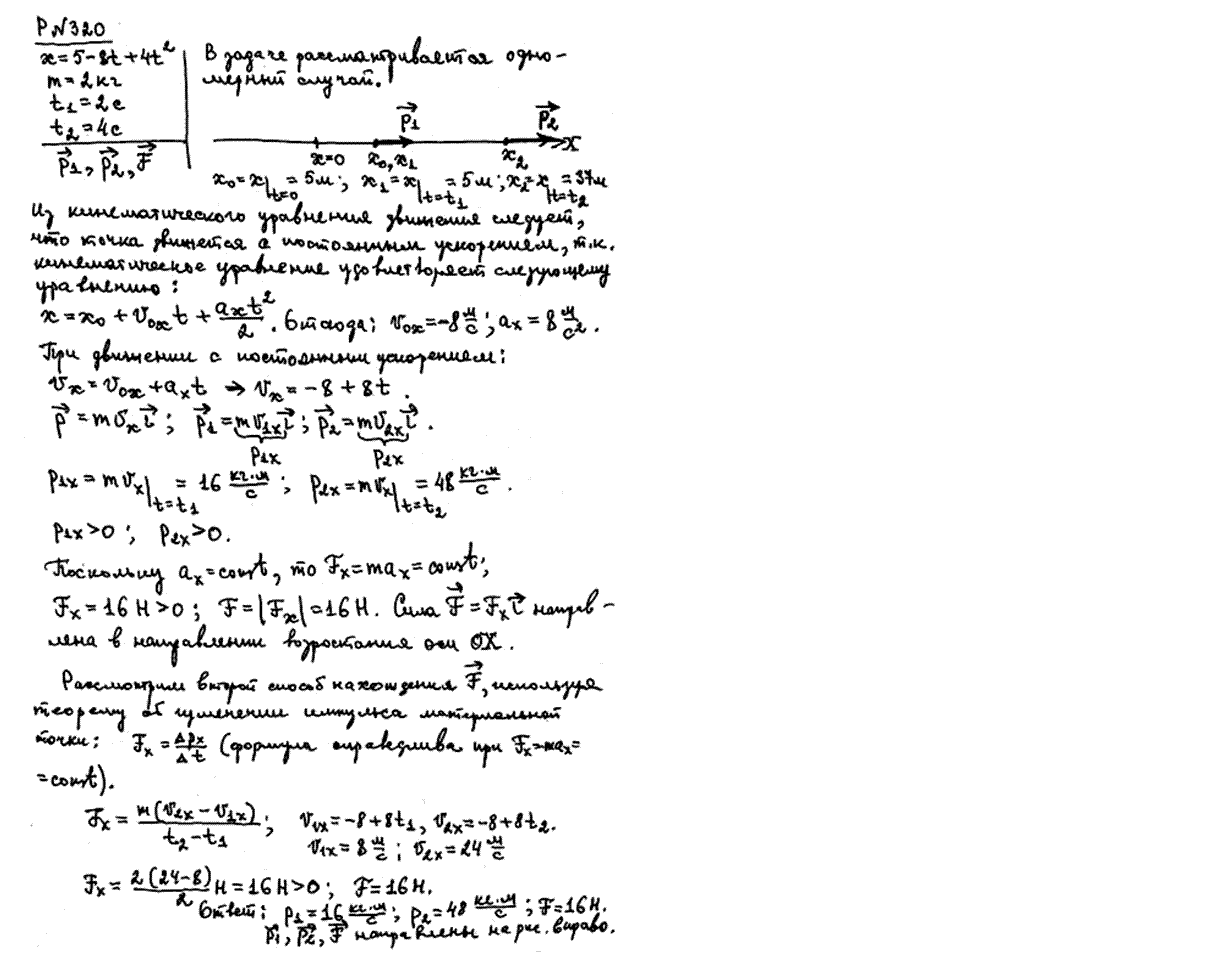 Р№320
x=5-8t+4t²
m=2кг
t₁=2с
t₂=4с
p⃗₁, p⃗₂, F⃗
В задаче рассматривается одно-
мерный случай.
p⃗₁ p⃗₂
x=0 x₀,x₁ x₂ X
x₀=x|t=0 =5м; x₁=x|t=t₁ =5м; x₂=x|t=t₂ =37м
Из кинематического уравнения движения следует,
что точка движется с постоянным ускорением, т.к.
кинематическое уравнение удовлетворяет следующему
уравнению:
x=x₀+v₀ₓt+aₓt²/2. Отсюда: v₀ₓ=-8 м/с; aₓ=8 м/с².
При движении с постоянным ускорением:
vₓ=v₀ₓ+aₓt → vₓ=-8+8t.
p⃗=mvₓi⃗; p⃗₁=mv₁ₓi⃗; p⃗₂=mv₂ₓi⃗.
p₁ₓ p₂ₓ
p₁ₓ=mvₓ|t=t₁ =16 кг·м/с; p₂ₓ=mvₓ|t=t₂ =48 кг·м/с.
p₁ₓ>0; p₂ₓ>0.
Поскольку aₓ=const, то Fₓ=maₓ=const;
Fₓ=16Н>0; F=|Fₓ|=16Н. Сила F⃗=Fₓi⃗ направ-
лена в направлении возростания оси OX.
Рассмотрим второй способ нахождения F⃗, используя
теорему об изменении импульса материальной
точки: Fₓ=Δpₓ/Δt (формула справедлива при Fₓ=maₓ=
=const).
Fₓ=m(v₂ₓ-v₁ₓ)/(t₂-t₁); v₁ₓ=-8+8t₁, v₂ₓ=-8+8t₂.
v₁ₓ=8 м/с; v₂ₓ=24 м/с
Fₓ=2(24-8)/2 Н=16Н>0; F=16Н.
Ответ: p₁=16 кг·м/с; p₂=48 кг·м/с; F=16Н.
p⃗₁, p⃗₂, F⃗ направлены на рис. вправо.